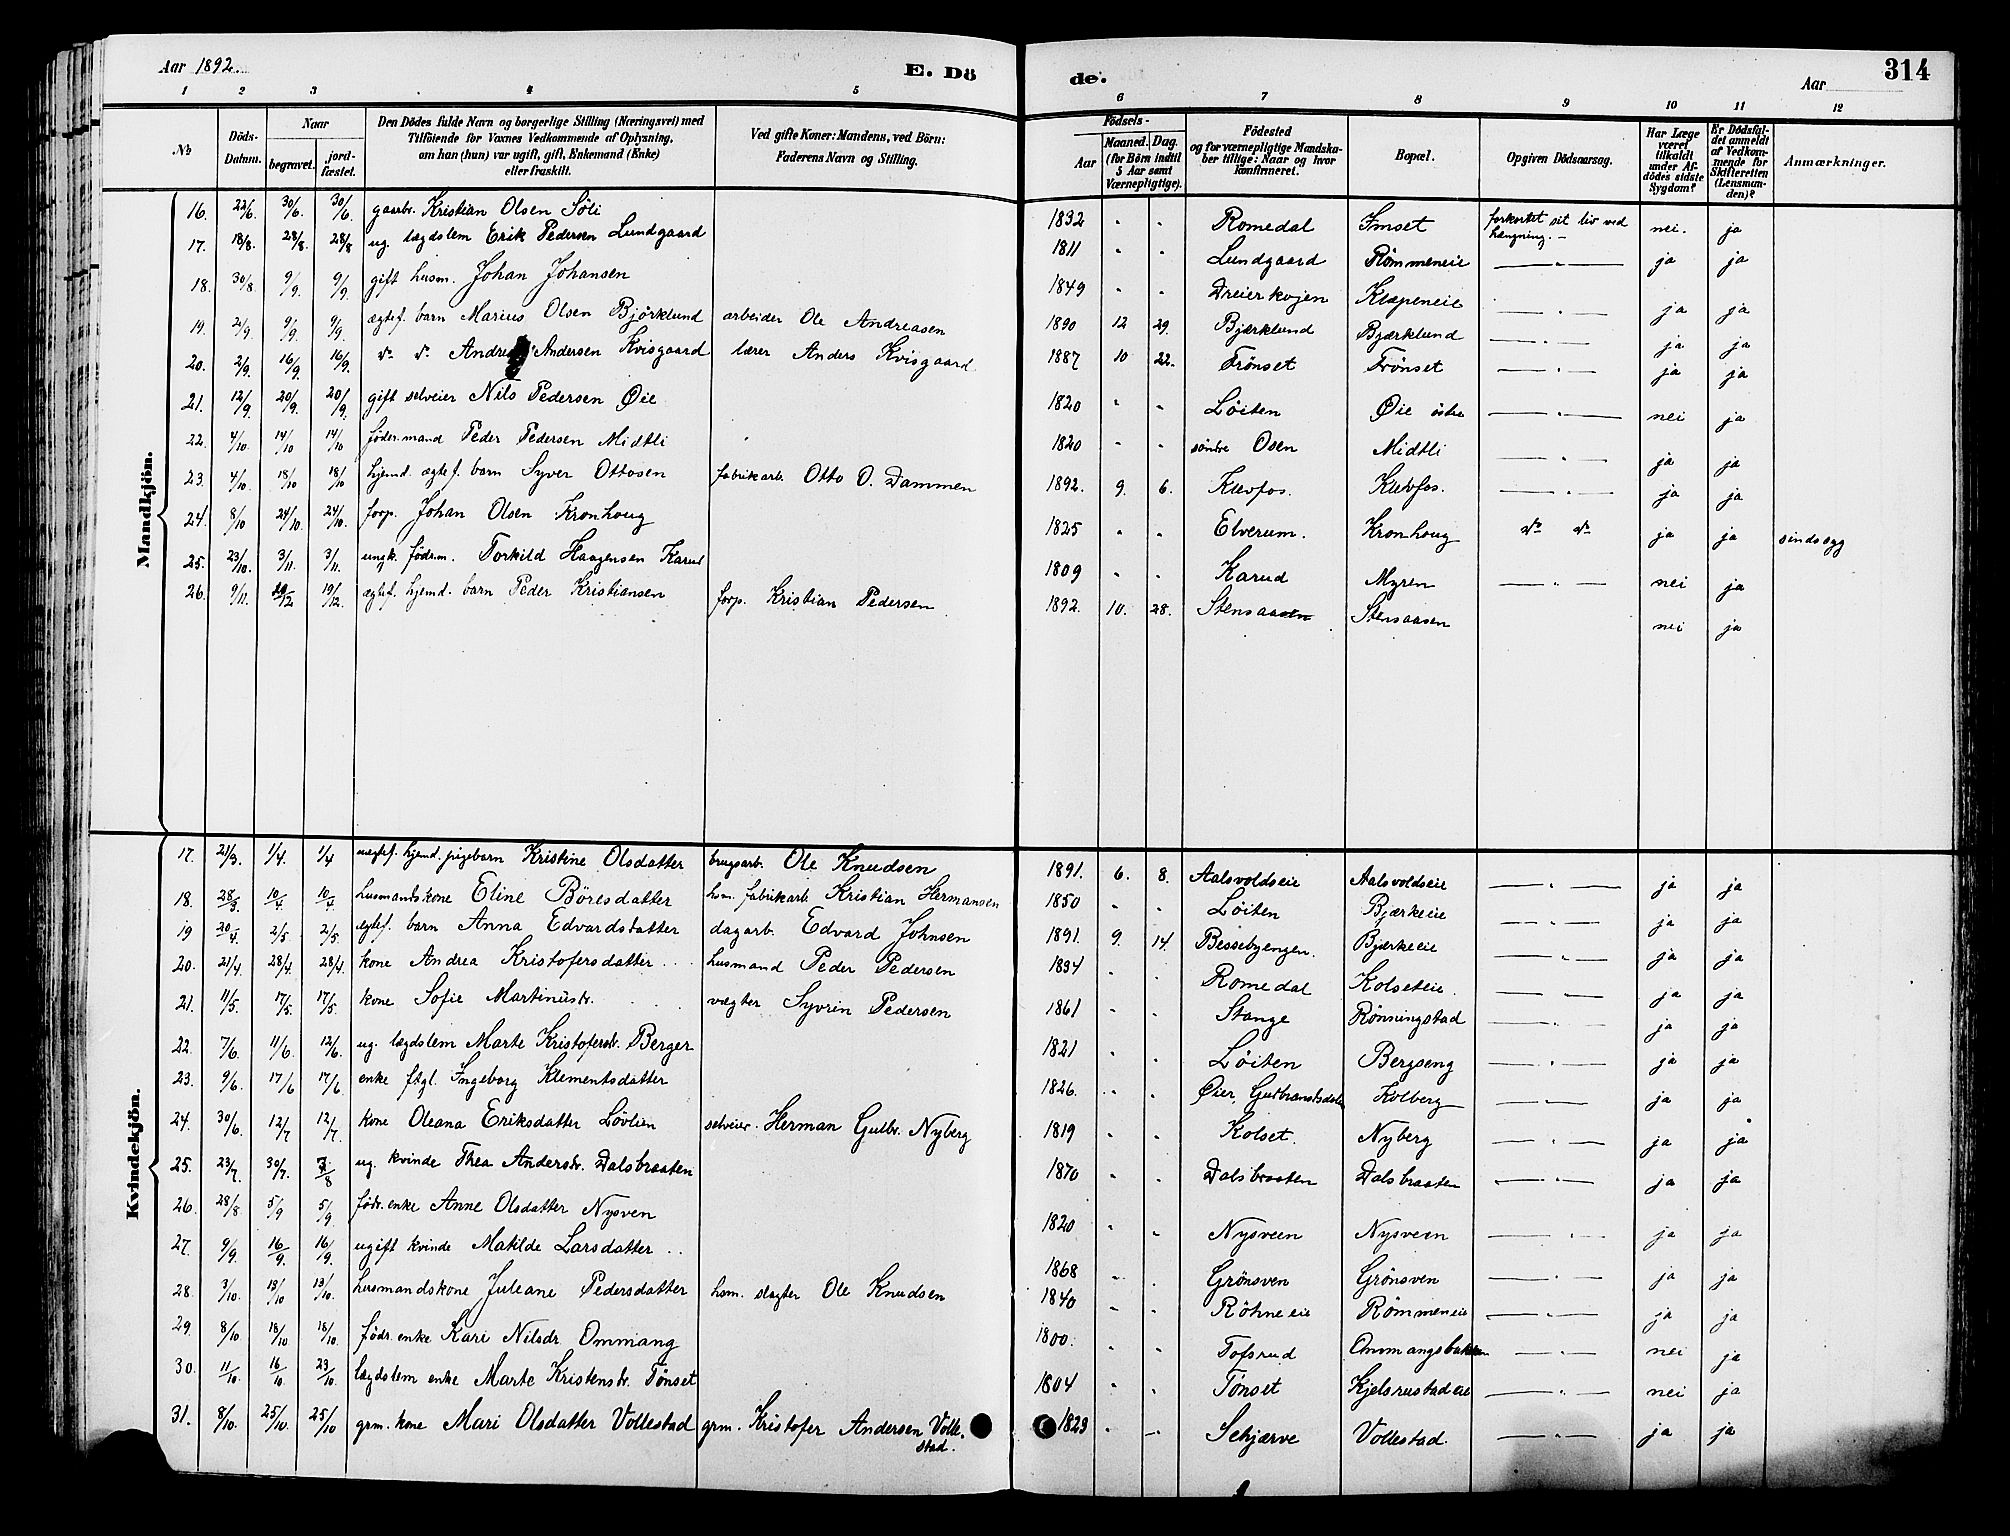 Aar 1892.
E. Dö
de.
Aar
314
1 2 3 4 5 6 7 8 9 10 11 12
No
Döds-Datum.
Naar
begravet.
jord-fæstet.
Den Dödes fulde Navn og borgerlige Stilling (Næringsvei) med
Tilföiende for Voxnes Vedkommende af Oplysning,
om han (hun) var ugift, gift, Enkemand (Enke)
eller fraskilt.
Ved gifte Koner: Mandens, ved Börn:
Faderens Navn og Stilling.
Födsels-
Aar
Maaned. Dag.
(for Börn indtil
5 Aar samt
Værnepligtige).
Födested
og for værnepligtige Mandska-
ber tillige: Naar og hvor
konfirmeret.
Bopæl.
Opgiven Dödsaarsag.
Har Læge
været
tilkaldt
under Af-
dödes sidste
Sygdom?
Er Dödsfal-
det anmeldt
af Vedkom-
mende for
Skifteretten
(Lensman-
den)?
Anmærkninger.
Mandkjön.
16. 22/6. 30/6. 30/6. gaarbr. Kristian Olsen Söli 1832 " " Romedal Imset forkortet sit liv ved hængning.- nei. ja
17. 18/8. 28/8. 28/8 ug. lægdslem Erik Pedersen Lundgaard 1811 " " Lundgaard Römmeneie — " — ja ja
18. 30/8. 9/9. 9/9. gift husm. Johan Johansen 1849 " " Dreierkojen Klæpeneie ja ja
19. 2/9. 9/9. 9/9. ægtef. barn Marius Olsen Björklund arbeider Ole Andreasen 1890 12 29. Bjærklund Bjærklund — " — ja ja
20. 2/9. 16/9. 16/9. do do Andreas Andersen Kvisgaard lærer Anders Kvisgaard 1887 10 22. Trönset Trönset — " — ja ja
21. 12/9. 20/9. 20/9. gift selveier Nils Pedersen Øie 1820 " " Löiten Øie östre — " — nei ja
22. 4/10. 14/10 14/10 föder.mand Peder Pedersen Midtli 1820 " " söndre Osen Midtli — " — ja ja
23. 4/10. 18/10 18/10 hjemd. ægtef. barn Syver Ottosen fabrikarb. Otto O. Dammen 1892. 9. 6. Klevfos. Klevfos. — " — ja ja
24. 8/10 24/10. 24/10. forp. Johan Olsen Kronhoug 1825 " " Elverum. Kronhoug do do ja ja sindssyg
25. 23/10. 3/11. 3/11. ungk. föder.m. Torkild Haagensen Karud 1809 " " Karud Myren — " — nei ja
26. 9/11. 19/12 19/12. ægtef. hjemd. barn Peder Kristiansen forp. Kristian Pedersen 1892. 10. 28. Stensaasen Stensaasen nei ja
Kvindekjön.
17. 21/3. 1/4. 1/4 uægtef. hjemd. pigebarn Kristine Olsdatter brugsarb. Ole Knudsen 1891. 6. 8. Aalsvoldseie Aalsvoldseie — " — ja ja
18. 28/3. 10/4 10/4 husmandskone Eline Böresdatter hsm. fabrikarb. Kristian Hermansen 1850 " " Löiten Bjærkeeie — " — ja ja
19 20/4 2/5 2/5. ægtef. barn Anna Edvardsdatter dagarb. Edvard Johnsen 1891. 9. 14. Bessebyengen. Bjærkeeie — " — ja ja
20. 21/4 28/4. 28/4. kone Andrea Kristofersdatter husmand Peder Pedersen 1834 " " Romedal Kolseteie. — " — ja ja
21. 11/5. 17/5. 17/5. kone Sofie Martinusdr. vægter Syvrin Pedersen 1861 " " Stange Rönningstad — " — ja ja
22. 7/6. 11/6. 12/6. ug. lægdslem Marte Kristofersdr. Berger 1821 " " Löiten Bergseng — " — ja ja
23. 9/6. 17/6 17/6 enke ftgl. Ingeborg Klementsdatter 1826. " " Øier, Gudbrandsdalen Kolberg — " — ja ja
24. 30/6. 12/7 12/7. kone Oleana Eriksdatter Lövlien selveier. Herman Gulbr. Nyberg 1819 " " Kolset. Nyberg — " — ja ja
25. 23/7. 30/7. 7/8 ug. kvinde Thea Andersdr. Dalsbraaten 1870 " " Dalsbraaten Dalsbraaten — " — ja ja
26. 28/8 5/9 5/9. födr. enke Anne Olsdatter Nysven 1820 " " Nysveen Nysveen — " — ja ja
27. 9/9. 16/9. 16/9. ugift kvinde Matilde Larsdatter 1868 " " Grönsven Grönsven — " — ja ja
28. 3/10. 13/10 13/10. husmandskone Juleane Pedersdatter hsm. slagter Ole Knudsen 1840 " " Röhneeie Römmeneie — " — ja ja
29. 8/10 18/10 18/10. födr. enke Kari Nilsdr. Ommang 1800. " " Tofsrud Ommangsbakken — " — nei ja
30. 11/10 16/10 23/10. lægdslem enke Marte Kristensdr. Tönset 1804 " " Tönset Kjelsrustadeie — " — nei ja
31. 8/10. 25/10. 25/10 grm. kone Mari Olsdatter Vollestad grm. Kristofer Andersen Volle-stad. 1823 " " Schjærve Vollestad. — " — ja ja